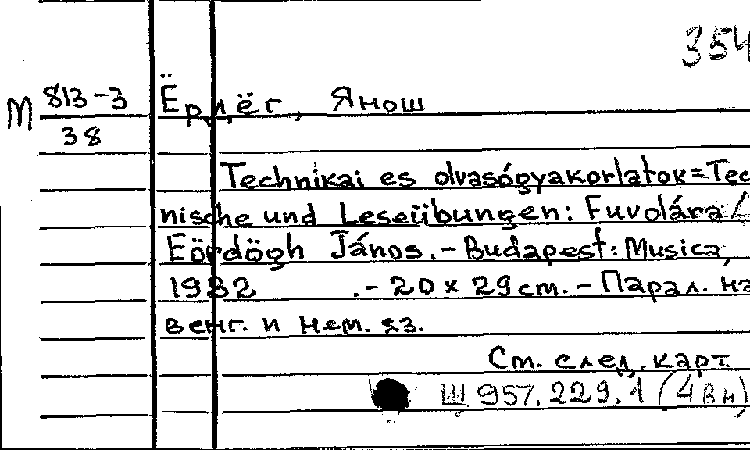 354
М 813-3 Ёрдёг, Янош
38
Technikai es olvasógyakorlatok=Tec
nische und Leseübungen: Fuvolára /
Eördögh János.-Budapest: Musica,
1982 .-20 x 29 cm.-Парал. на
венг. и нем. яз.
См. след. карт
Щ 957.229.1 (4Вн)